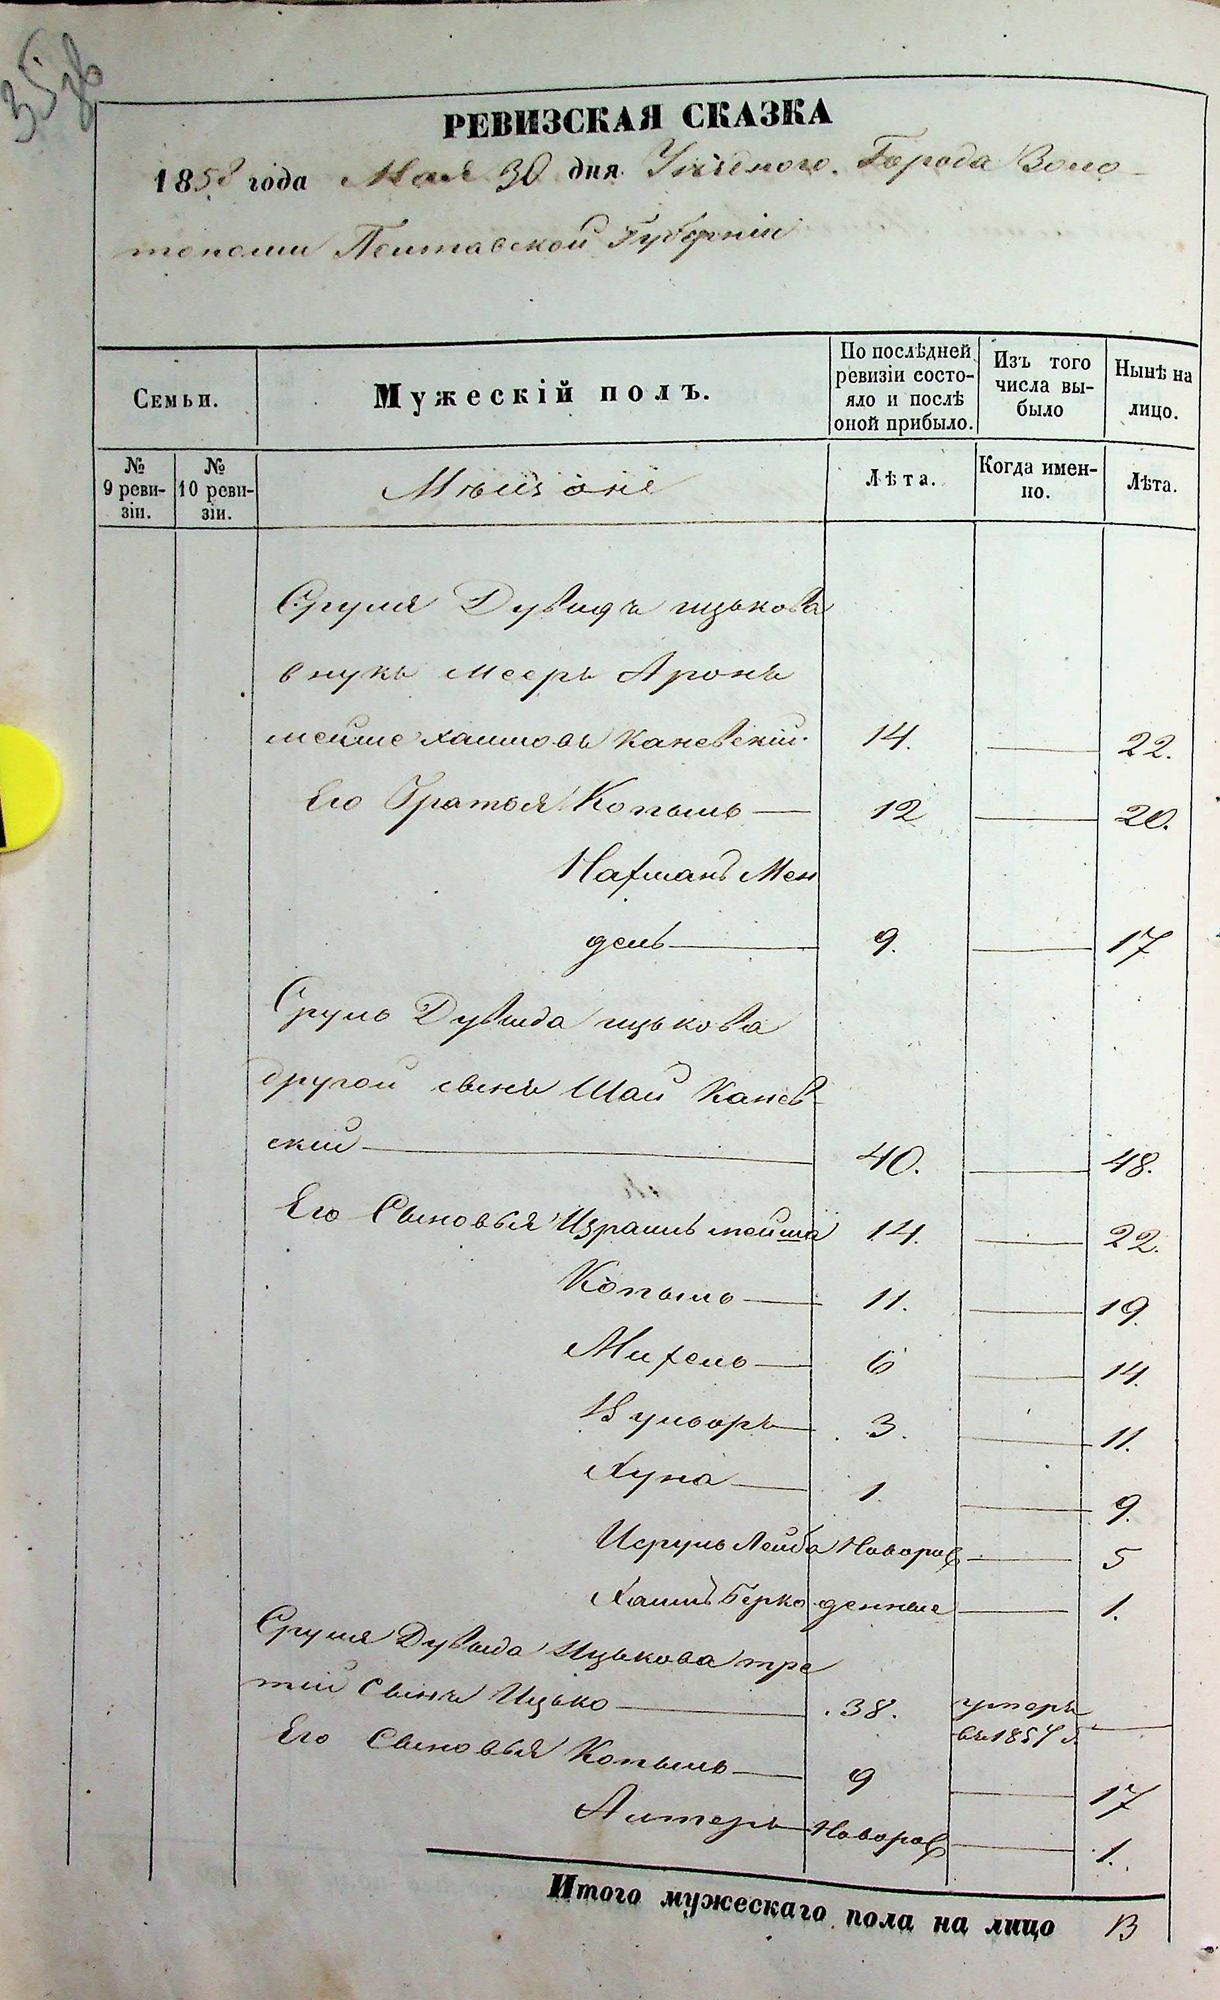 35
РЕВИЗСКАЯ СКАЗКА
1858 года Мая 30 дня Уѣзднаго Города Золо-
тоноши Полтавской Губерніи
Семьи.
Мужескій полъ.
По послѣдней ревизіи состо-
яло и послѣ оной прибыло.
Изъ того числа вы-
было
Нынѣ на лицо.
№ 9 реви-
зіи.
№ 10 реви-
зіи.
Мѣщане
Лѣта.
Когда имен-
но.
Лѣта.
Сруля Дувидъ ицькова
внукъ Мееръ Аронъ
мейше хаимовъ Каневскій. 14. 22.
Его Братья Копыль 12 20.
Нахманъ Мен
дель 9. 17
Сруль Дувида ицькова
другой сынъ Шай Канев-
скій 40. 48.
Его Сыновья Израиль мейша 14. 22.
Копыль 11. 19.
Михель 6 14.
3. 11.
Хуна 1. 9.
Исруль Лейба Новорож 5
Хаимъ Берко денные 1.
Сруля Дувида Ицькова тре
тій Сынъ Ицько 38. умеръ
въ 1857 г.
Его Сыновья Копыль 9 17
Алтеръ Новорож 1.
Итого мужескаго пола на лицо 13